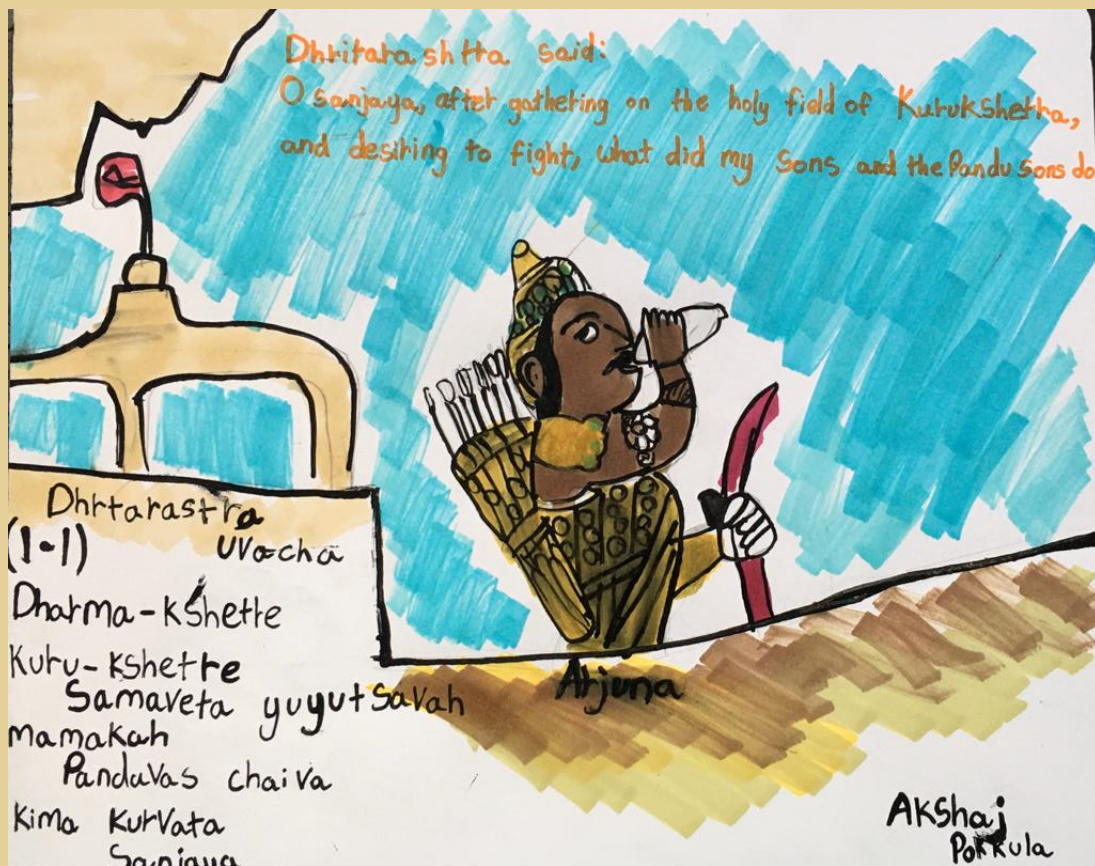 Dhritarashtra said:
O sanjaya, after gathering on the holy field of Kurukshetra,
and desiring to fight, what did my sons and the Pandu sons do
Dhrtarastra
(1-1) uvacha
Dharma-kshetre
Kuru-kshetre
Samaveta yuyutsavah
mamakah
Pandavas chaiva
Kima Kurvata
Sanjaya
Arjuna
Akshaj
Pokkula